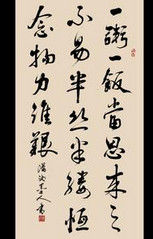 一粥一飯當思來之
不易半絲半縷恒
念物力維艱